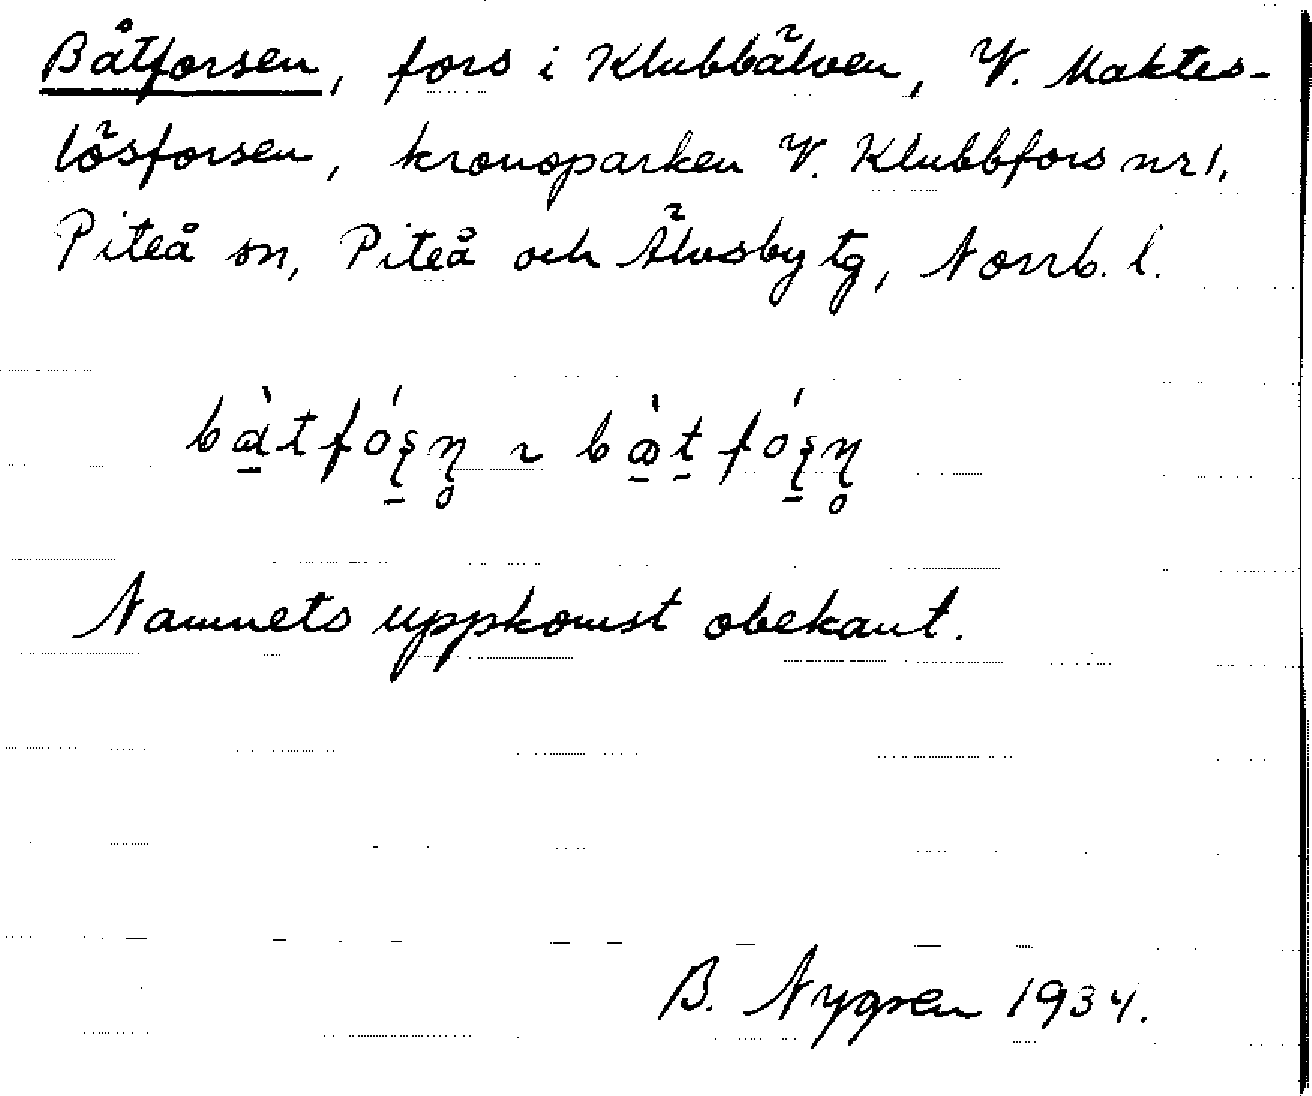 Båtforsen, fors i Klubbälven, V. Maktes-
lösforsen, kronoparken V. Klubbfors nr 1,
Piteå sn, Piteå och Älvsby tg, Norrb. l.
Namnets uppkomst obekant.
B. Nygren 1934.